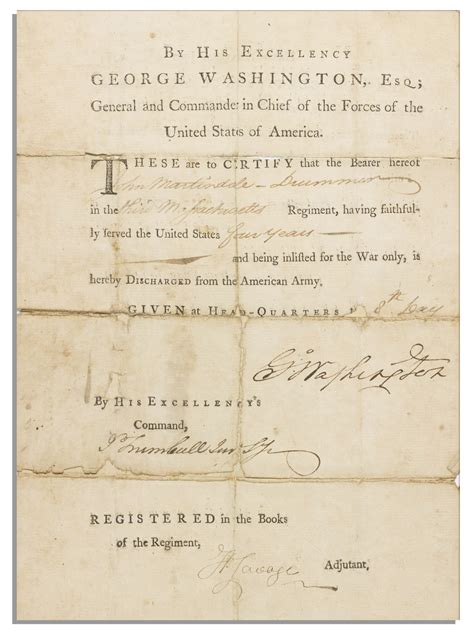 BY HIS EXCELLENCY
GEORGE WASHINGTON, ESQ;
General and Commander in Chief of the Forces of the
United States of America.
THESE are to CERTIFY that the Bearer hereof
John Martindale - Drummer
in the third Massachusetts Regiment, having faithful-
ly served the United States four years
and being inlisted for the War only, is
hereby DISCHARGED from the American Army.
GIVEN at HEAD-QUARTERS 8th Day
G. Washington
BY HIS EXCELLENCY'S
Command,
J Trumbull Jun Sy
REGISTERED in the Books
of the Regiment,
Savage Adjutant,